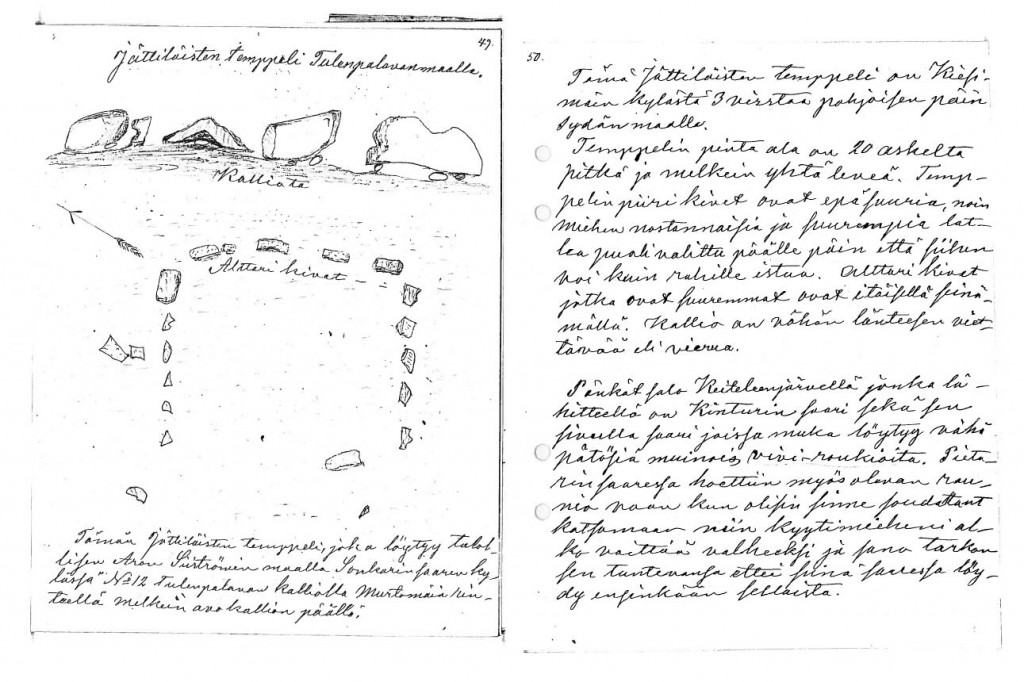 49.
Jättiläisten temppeli Tulenpalavanmaalla.
Kalliota
Alttari kivat
Tämän Jättiläisten temppeli, joka löytyy talol-
lisen Aron Siströmen maalla Sonkarinsaaren ky-
lässä No 12 Tulenpalavan kalliolla Murtomäin rin-
taellä melkein avokallion päällä.
50.
Tämä Jättiläisten temppeli on Kiesi-
mäin kylästä 3 virstaa pohjoisen päin
sydänmaalla.
Temppelin pinta ala on 20 askelta
pitkä ja melkein yhtä leveä. Temp-
pelin piiri kivet ovat epäsuuria, noin
miehen nostannaisia ja suurempia lat-
tea puoli valittu päälle päin että siihen
voi kuin rahille istua. Alttari kivat
jotka ovat suuremmat ovat itäisellä seinä-
mällä. Kallio on vähän länteesen viet-
tävää eli vierua.
salo Keiteleenjärvellä jonka lä-
hitteellä on Kinturin saari sekä sen
sivulla saari joissa muka löytyy vähä
pätösiä muinois vivi-roukioita. Pieta-
rinsaaressa hoettiin myös olevan rau-
nio vaan kun olisin sinne soudattant
katsomaan niin kyytimieheni al-
ko väittää valheeksi ja sano tarkan
sen tuntevansa ettei siinä saaressa löy-
dy enginkään sellaista.